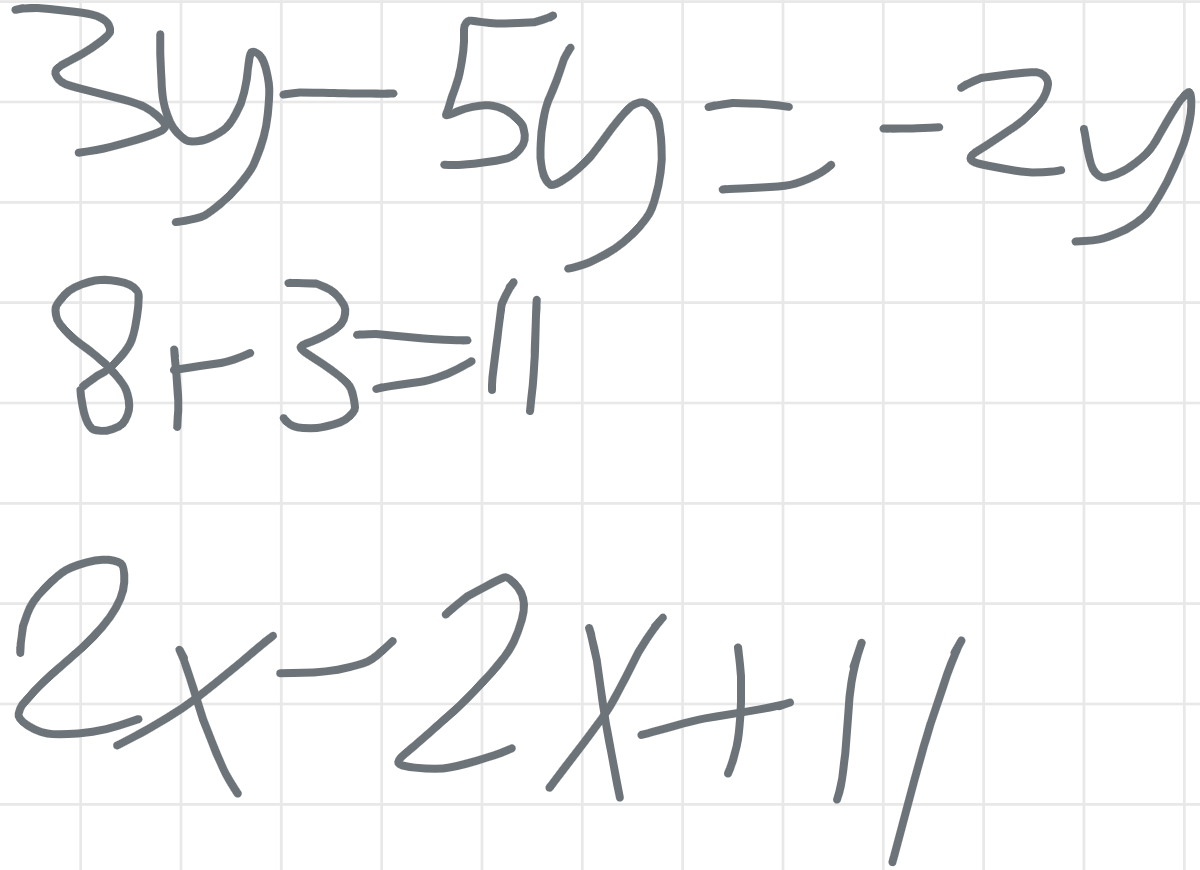 3y - 5y = -2y
8 + 3 = 11
2x - 2x + 11